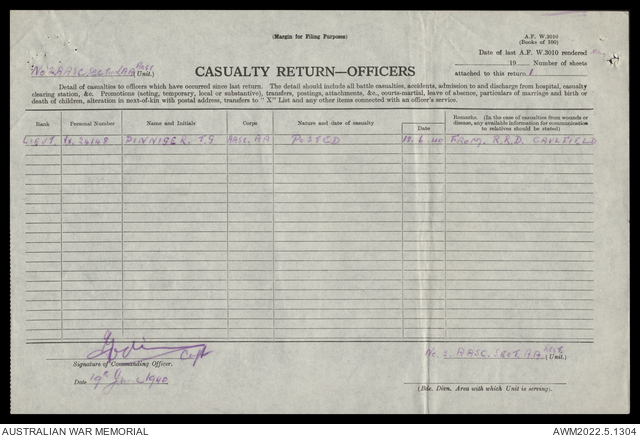 (Margin for Filing Purposes)
A.F. W.3010
(Books of 100)
Date of last A.F. W.3010 rendered
19 Number of sheets
attached to this return 1
No 2 AASC Sect AA
(Unit.)
CASUALTY RETURN—OFFICERS
Detail of casualties to officers which have occurred since last return. The detail should include all battle casualties, accidents, admission to and discharge from hospital, casualty
clearing station, &c. Promotions (acting, temporary, local or substantive), transfers, postings, attachments, &c., courts-martial, leave of absence, particulars of marriage and birth or
death of children, alteration in next-of-kin with postal address, transfers to "X" List and any other items connected with an officer's service.
Rank Personal Number Name and Initials Corps Nature and date of casualty Date Remarks. (In the case of casualties from wounds or disease, any available information for communication to relatives should be stated)
Lieut. Vx. 24148 PINNIGER. T.G AASC. AA POSTED 18.6.40 FROM. R.R.D. CAULFIELD
Capt
Signature of Commanding Officer.
Date 19th 1940
No. 2. AASC. SECT. A.A.
(Unit.)
(Bde. Divn. Area with which Unit is serving).
AUSTRALIAN WAR MEMORIAL
AWM2022.5.1304